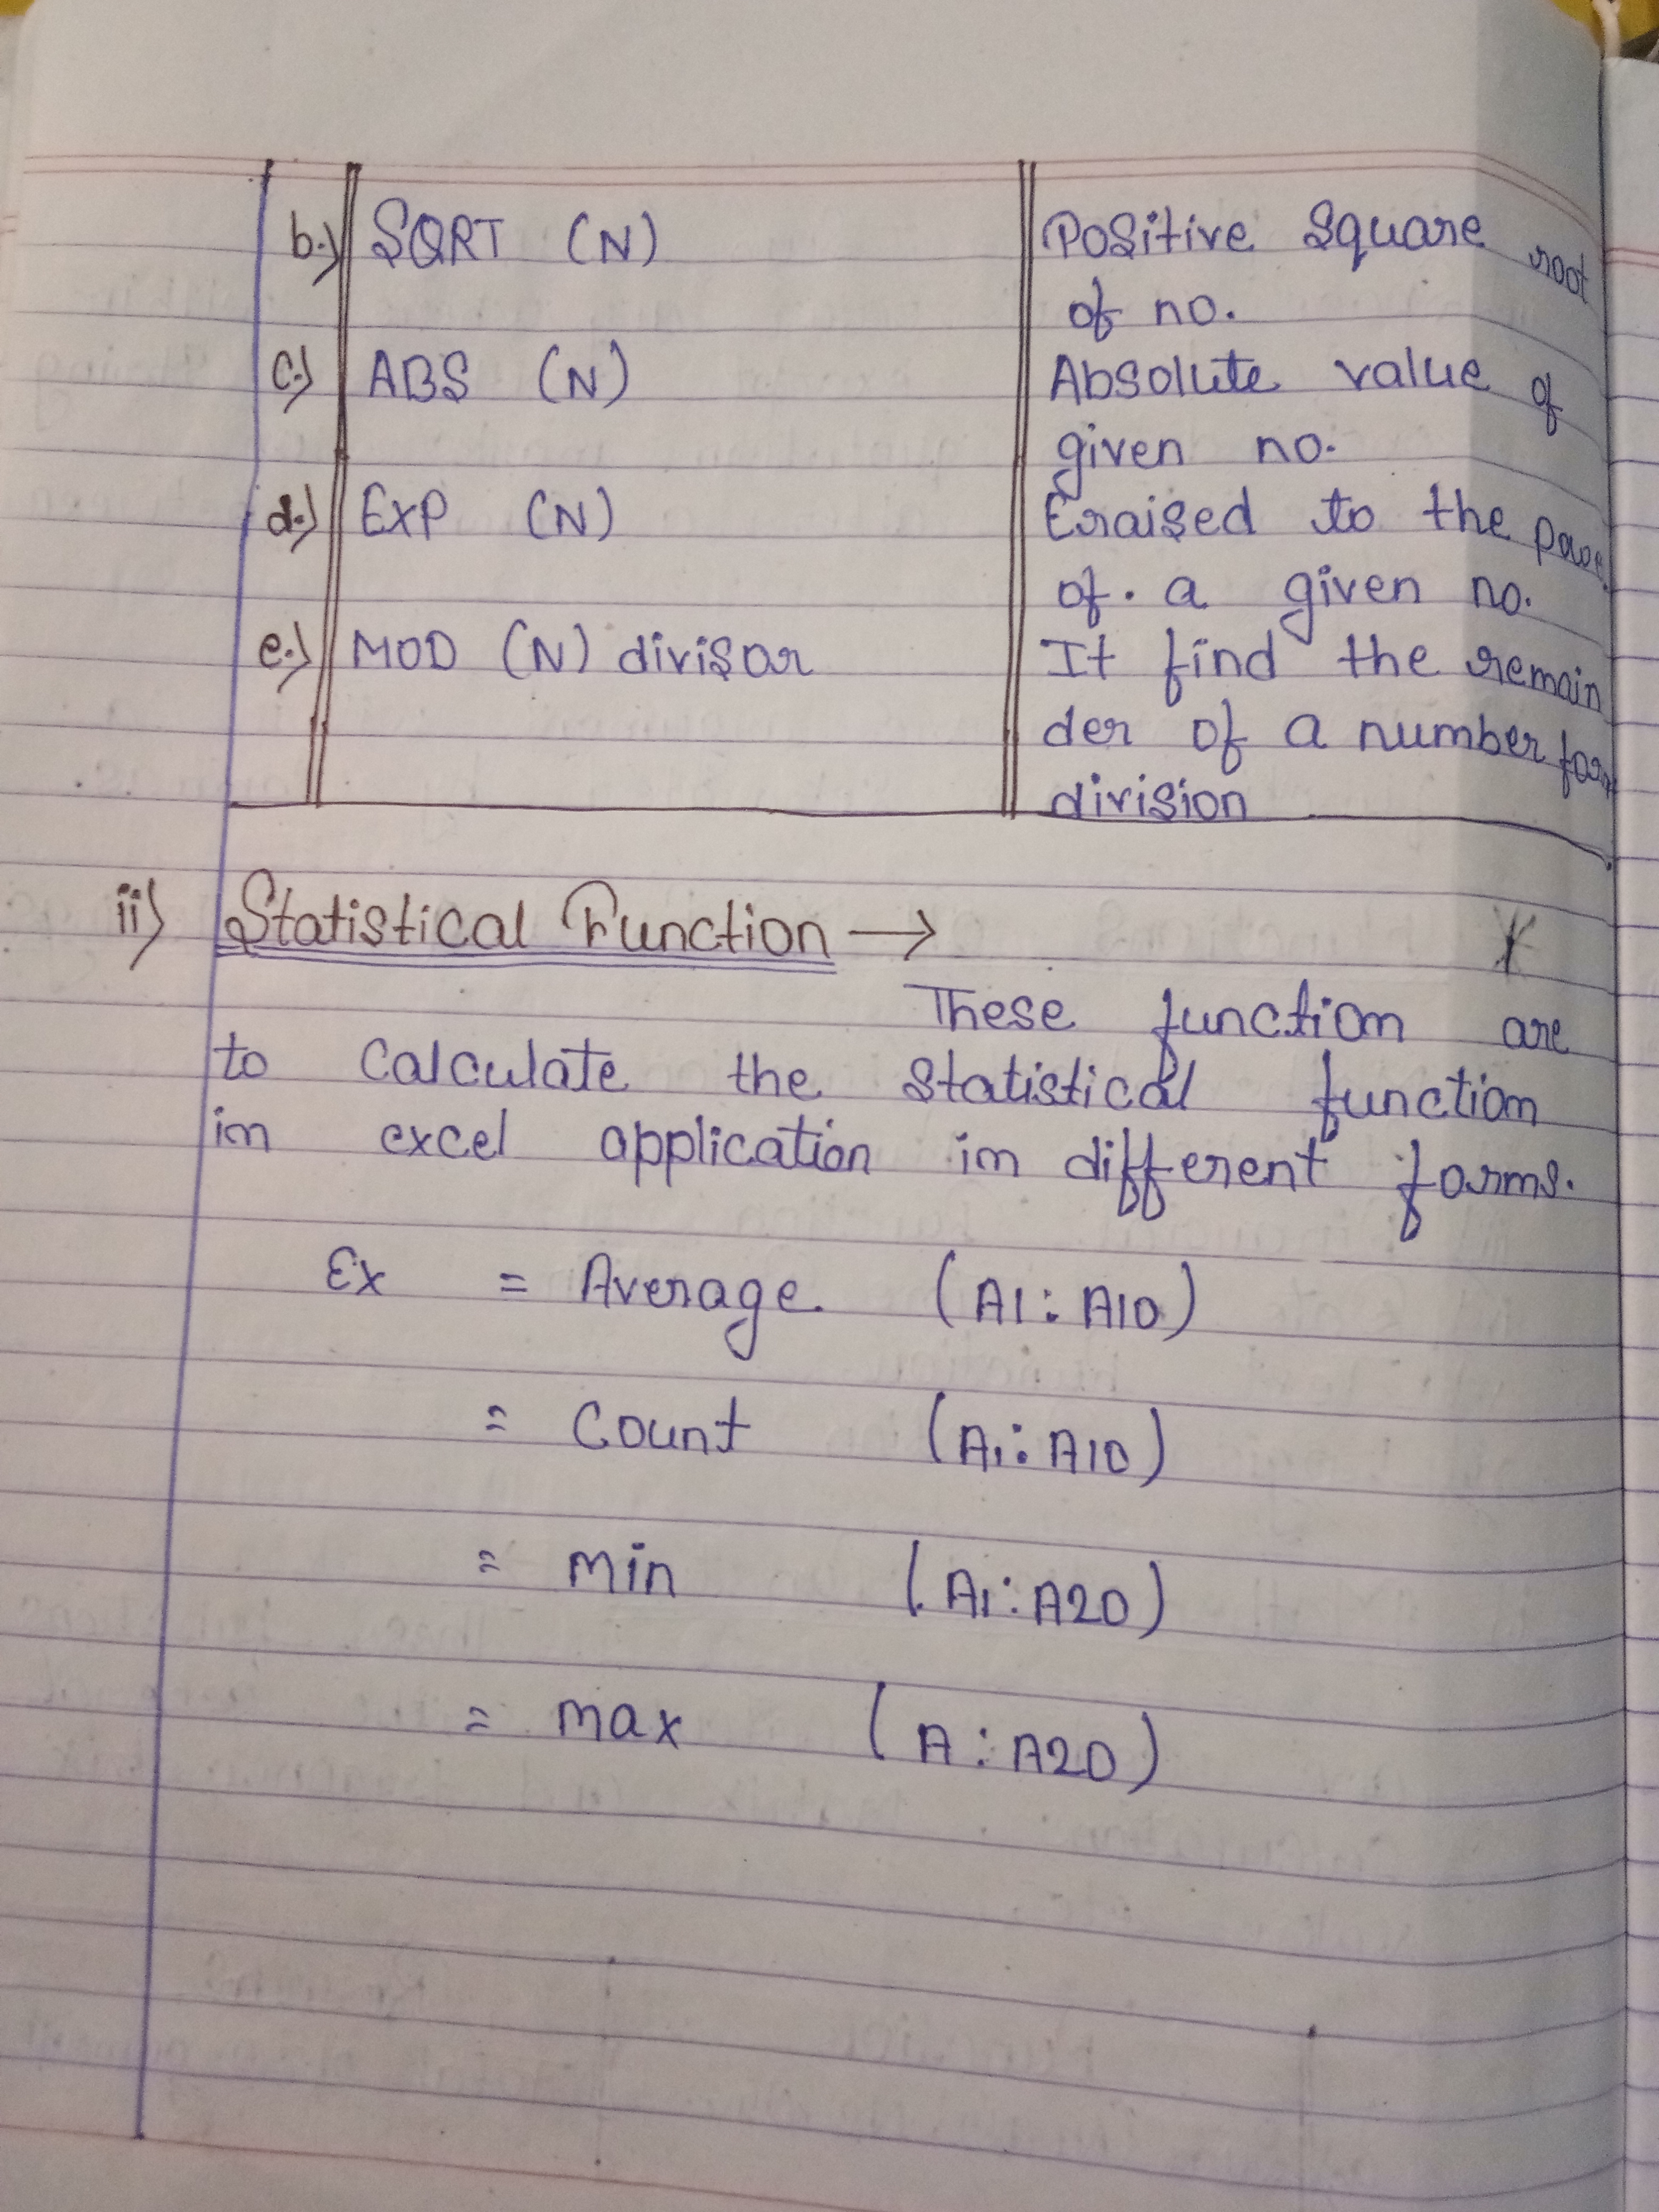 b.) SQRT (N) Positive Square root
of no.
c.) ABS (N) Absolute value of
given no.
d.) EXP (N) Eraised to the powe
of. a given no.
e.) MOD (N) divisor It find the remain
der of a number for
division
ii) Statistical Function →
These function are
to calculate the statistical function
in excel application in different forms.
Ex = Average (A1:A10)
= Count (A1:A10)
= min (A1:A20)
= max (A:A20)